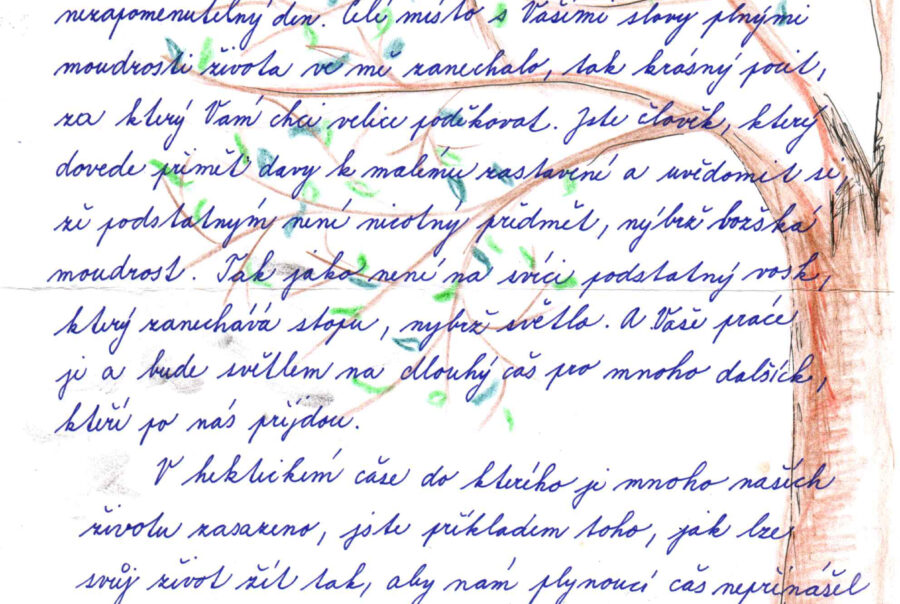 nezapomenutelný den. Celé místo s Vašimi slovy plnými
moudrosti života ve mě zanechalo, tak krásný pocit,
za který Vám chci velice poděkovat. Jste člověk, který
dovede přimět davy k malému zastavení a uvědomit si,
že podstatným není nicotný předmět, nýbrž božská
moudrost. Tak jako není na svíci podstatný vosk,
který zanechává stopu, nýbrž světlo. A Vaše práce
je a bude světlem na dlouhý čas pro mnoho dalších,
kteří po nás přijdou.
V hektickém čase do kterého je mnoho našich
životu zasazeno, jste příkladem toho, jak lze
svůj život žít tak, aby nám plynoucí čas nepřinášel